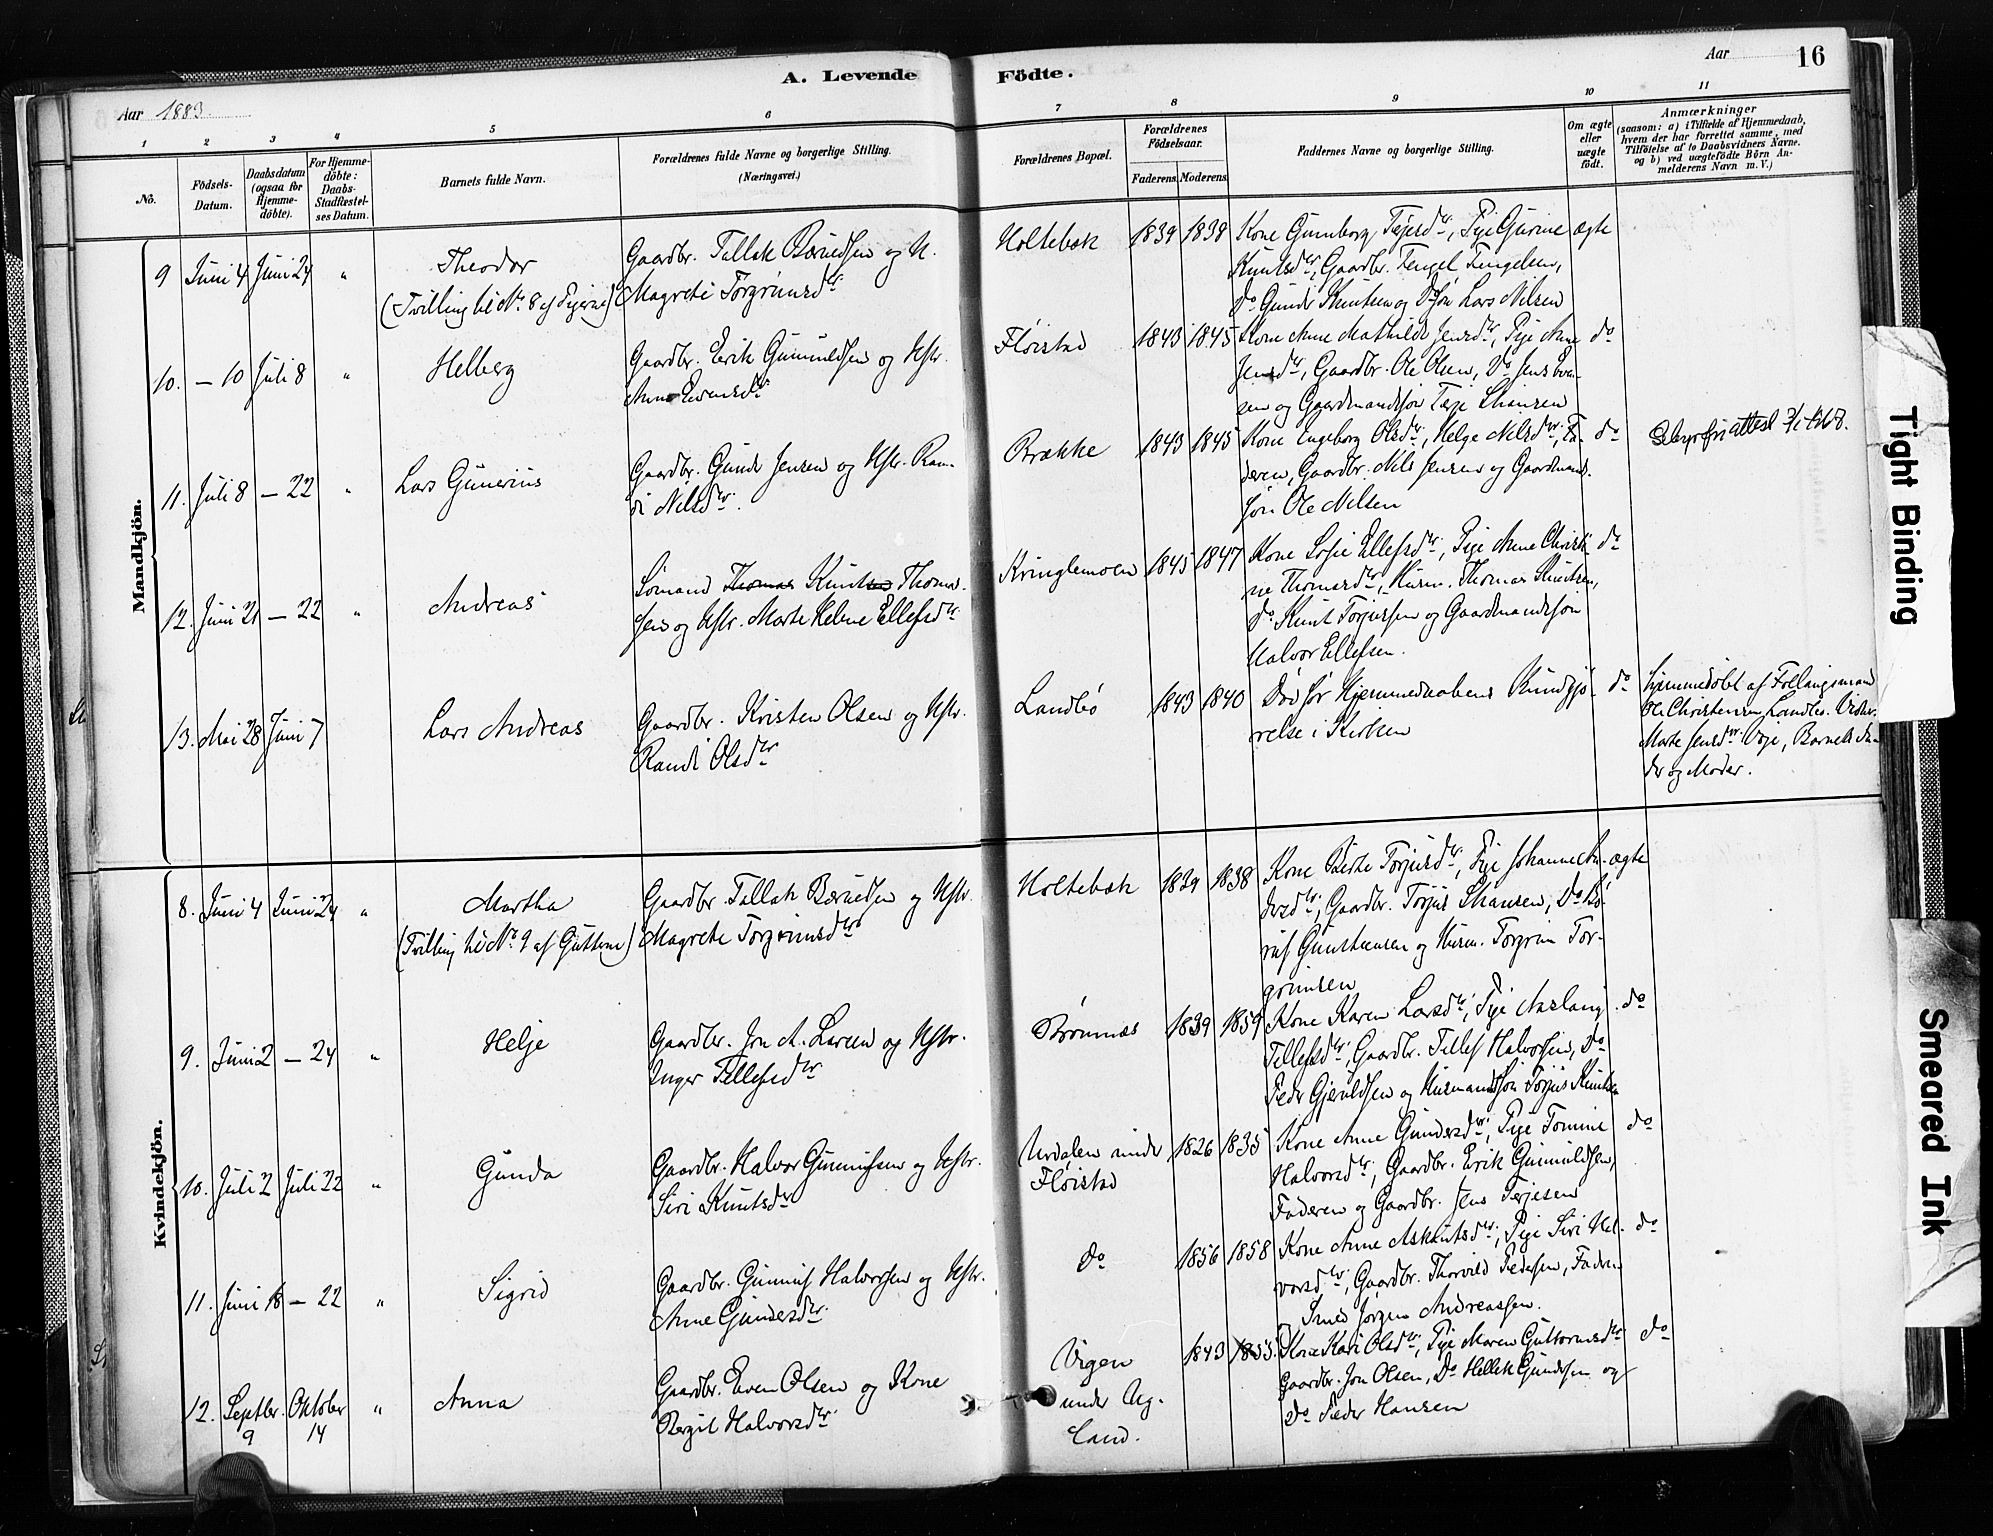 A. Levende Födte.
Aar 1883
Aar 16
1 2 3 4 5 6 7 8 9 10 11
No.
Födsels-Datum.
Daabsdatum (ogsaa for Hjemme-döbte).
For Hjemme-döbte: Daabs-Stadfæstel-ses Datum.
Barnets fulde Navn.
Forældrenes fulde Navne og borgerlige Stilling.
(Næringsvei.)
Forældrenes Bopæl.
Forældrenes Födselsaar.
Faderens. Moderens.
Faddernes Navne og borgerlige Stilling.
Om ægte eller uægte födt.
Anmærkninger
(saasom: a) i Tilfælde af Hjemmedaab,
hvem der har forrettet samme, med
Tilföielse af to Daabsvidners Navne.
og b) ved uægtefödte Börn An-
melderens Navn m. V.)
Mandkjön.
9 Juni 4 Juni 24 " Theodor
(Tvilling til No. 8 af Pigerne)
Gaardbr. Tallak Børuldsen og H.
Magrete Torgrimsdtr.
Holtebæk 1839 1838
Kone Gunnborg Terjesdtr., Pige Gurine
Knutsdtr., Gaardbr. Tengel Tengelsen,
Do. Gunder Knutsen og Do Søn Lars Nilsen
ægte
10. – 10 Juli 8 " Helberg
Gaardbr. Erik Gunnuldsen og Hstr.
Anne Evensdtr.
Fløistad 1843 1845
Kone Anne Mathilde Jensdtr., Pige Anne
Jensdtr., Gaardbr. Ole Olsen, Do Jens Even-
sen og Gaardmandssøn Terje
do
11. Juli 8 – 22 " Lars Gunerius
Gaardbr. Gunder Jensen og Hstr. Ran-
di Nilsdtr.
Brække 1843 1845
Kone Engeborg Olsdtr., Helge Nilsdtr., Fa-
deren, Gaardbr. Nils Jensen og Gaardmands-
søn Ole Nilsen
do
12. Juni 21 – 22 " Andreas
Sømand Thomas Knutsen Thomas-
sen og Hstr. Marte Helene Ellefsdtr.
Kringlemoen 1845 1847
Kone Sofie Ellefsdtr., Pige Anne Christi-
ne Thomasdtr., Husm. Thomas Knutsen,
do. Knut Torjussen og Gaardmandssøn
Halvor Ellefsen.
do
13. Mai 28 Juni 7 Lars Andreas
Gaardbr. Kristen Olsen og Hstr.
Randi Olsdtr.
Landbø 1843 1840
Død før Hjemmedaabens Kundgjø-
relse i Kirken
do
hjemmedøbt af
Ole Christensen Landbø.
Marte Jensdtr. Barnets Fa-
der og Moder.
Kvindekjön.
8. Juni 4 Juni 24 " Martha
(Tvilling til No. 9 af Guttene)
Gaardbr. Tallak Børuldsen og Hstr.
Magrete Torgrimsdtr.
Holtebæk 1839 1838
Kone Berte Torjusdtr., Pige Johanne An-
dersdtr., Gaardbr. Torjus
og Husm. Torgrim Tor-
grimsen
ægte
9. Juni 2 – 24 " Helje
Gaardbr. Jon A. Larsen og Hstr.
Inger Tellefsdtr.
Brømnæs 1839 1859
Kone Karen Larsdtr., Pige Aaslaug
Tellefsdtr., Gaardbr. Tellef Halvorsen, Do
Peder Gjeruldsen og Husmandssøn Torjus Knutsen
do
10. Juli 2 Juli 22 " Gunda
Gaardbr. Halvor Gunnufsen og Hstr.
Siri Knutsdtr.
Urdalen under
Fløistad
1826 1835
Kone Anne Gundersdtr., Pige Tomine
Halvorsdtr., Gaardbr. Erik Gunnuldsen,
Faderen og Gaardbr. Jens Terjesen
do
11. Juni 18 – 22 " Sigrid
Gaardbr. Gunnuf Halvorsen og Hstr.
Anne Gundersdtr.
do 1856 1858
Kone Anne Asknutsdtr., Pige Siri Hal-
vorsdtr., Gaardbr. Thorvild Pedersen, Faderen
Smed Jørgen Andreassen.
do
12. Septbr. 9 Oktober 14 " Anna
Gaardbr. Even Olsen og Kone
Bergit Halvorsdtr.
Vigen
under Ug-
land.
1843 1855
Kone Kari Olsdtr., Pige Maren Guttormsdtr.
Gaardbr. Jon Olsen, Do Hellek Gundersen og
Do Peder Hansen
do
Tight Binding
Smeared Ink